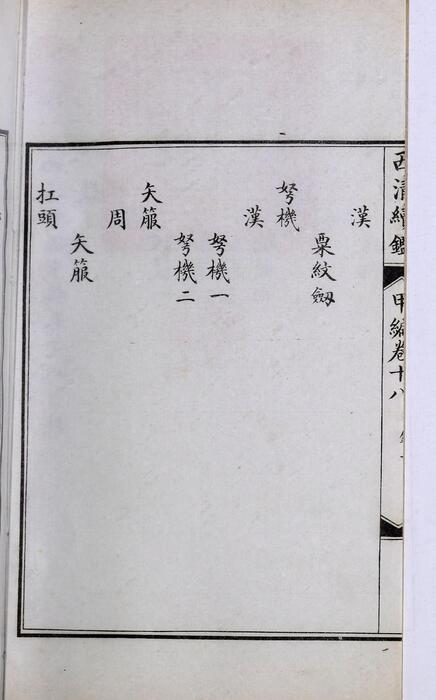 西清續鑑 甲編卷十八
漢
粟紋劔
弩機
漢
弩機一
弩機二
矢箙
周
矢箙
扛頭